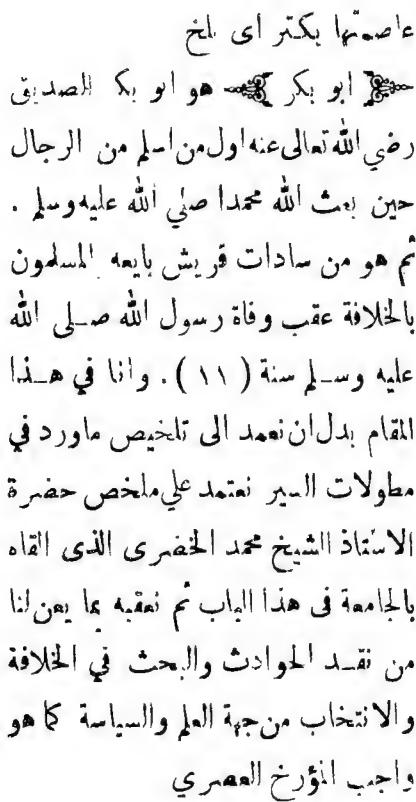 عاصمتها بكتر اى بلخ
ابو بكر هو ابو بكر الصديق
رضي الله تعالى عنه اول من اسلم من الرجال
حين بعث الله محمدا صلي الله عليه وسلم .
ثم هو من سادات قريش بايعه المسلمون
بالخلافة عقب وفاة رسول الله صلى الله
عليه وسلم سنة ( ١١ ) . وانا في هذا
المقام بدل ان نعمد الى تلخيص ماورد في
مطولات السير نعتمد علي ملخص حضرة
الاستاذ الشيخ محمد الخضرى الذى القاه
بالجامعة فى هذا الباب ثم نعقبه بما يعن لنا
من نقد الحوادث والبحث في الخلافة
والانتخاب من جهة العلم والسياسة كما هو
واجب المؤرخ العصري